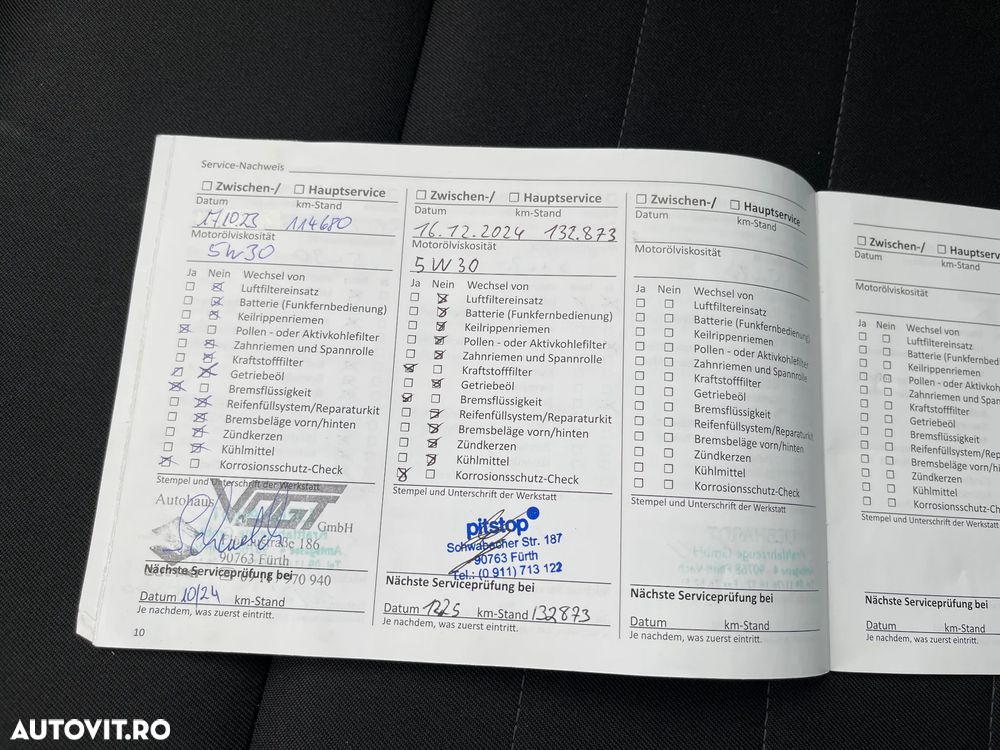 Service-Nachweis
☐ Zwischen-/ ☐ Hauptservice
Datum km-Stand
17.10.23 114680
Motorölviskosität
5W30
Ja Nein Wechsel von
Luftfiltereinsatz
Batterie (Funkfernbedienung)
Keilrippenriemen
Pollen - oder Aktivkohlefilter
Zahnriemen und Spannrolle
Kraftstofffilter
Getriebeöl
Bremsflüssigkeit
Reifenfüllsystem/Reparaturkit
Bremsbeläge vorn/hinten
Zündkerzen
Kühlmittel
Korrosionsschutz-Check
Stempel und Unterschrift der Werkstatt
Autohaus VOGT GmbH
straße 186
90763 Fürth
970 940
Nächste Serviceprüfung bei
Datum 10/24 km-Stand
Je nachdem, was zuerst eintritt.
10
☐ Zwischen-/ ☐ Hauptservice
Datum km-Stand
16.12.2024 132.873
Motorölviskosität
5W30
Ja Nein Wechsel von
Luftfiltereinsatz
Batterie (Funkfernbedienung)
Keilrippenriemen
Pollen - oder Aktivkohlefilter
Zahnriemen und Spannrolle
Kraftstofffilter
Getriebeöl
Bremsflüssigkeit
Reifenfüllsystem/Reparaturkit
Bremsbeläge vorn/hinten
Zündkerzen
Kühlmittel
Korrosionsschutz-Check
Stempel und Unterschrift der Werkstatt
pitstop
Schwabacher Str. 187
90763 Fürth
Tel.: (0 911) 713 122
Nächste Serviceprüfung bei
Datum 1225 km-Stand 132873
Je nachdem, was zuerst eintritt.
☐ Zwischen-/ ☐ Hauptservice
Datum km-Stand
Motorölviskosität
Ja Nein Wechsel von
Luftfiltereinsatz
Batterie (Funkfernbedienung)
Keilrippenriemen
Pollen - oder Aktivkohlefilter
Zahnriemen und Spannrolle
Kraftstofffilter
Getriebeöl
Bremsflüssigkeit
Reifenfüllsystem/Reparaturkit
Bremsbeläge vorn/hinten
Zündkerzen
Kühlmittel
Korrosionsschutz-Check
Stempel und Unterschrift der Werkstatt
Nächste Serviceprüfung bei
Datum km-Stand
Je nachdem, was zuerst eintritt.
☐ Zwischen-/ ☐ Hauptserv
Datum km-Stand
Motorölviskosität
Ja Nein Wechsel von
Luftfiltereinsatz
Batterie (Funkfernbed
Keilrippenriemen
Pollen - oder Aktivkoh
Zahnriemen und Span
Kraftstofffilter
Getriebeöl
Bremsflüssigkeit
Reifenfüllsystem/Rep
Bremsbeläge vorn/hi
Zündkerzen
Kühlmittel
Korrosionsschutz-Che
Stempel und Unterschrift der Werkstatt
Nächste Serviceprüfung bei
Datum km-Stand
Je nachdem, was zuerst eintritt.
AUTOVIT.RO